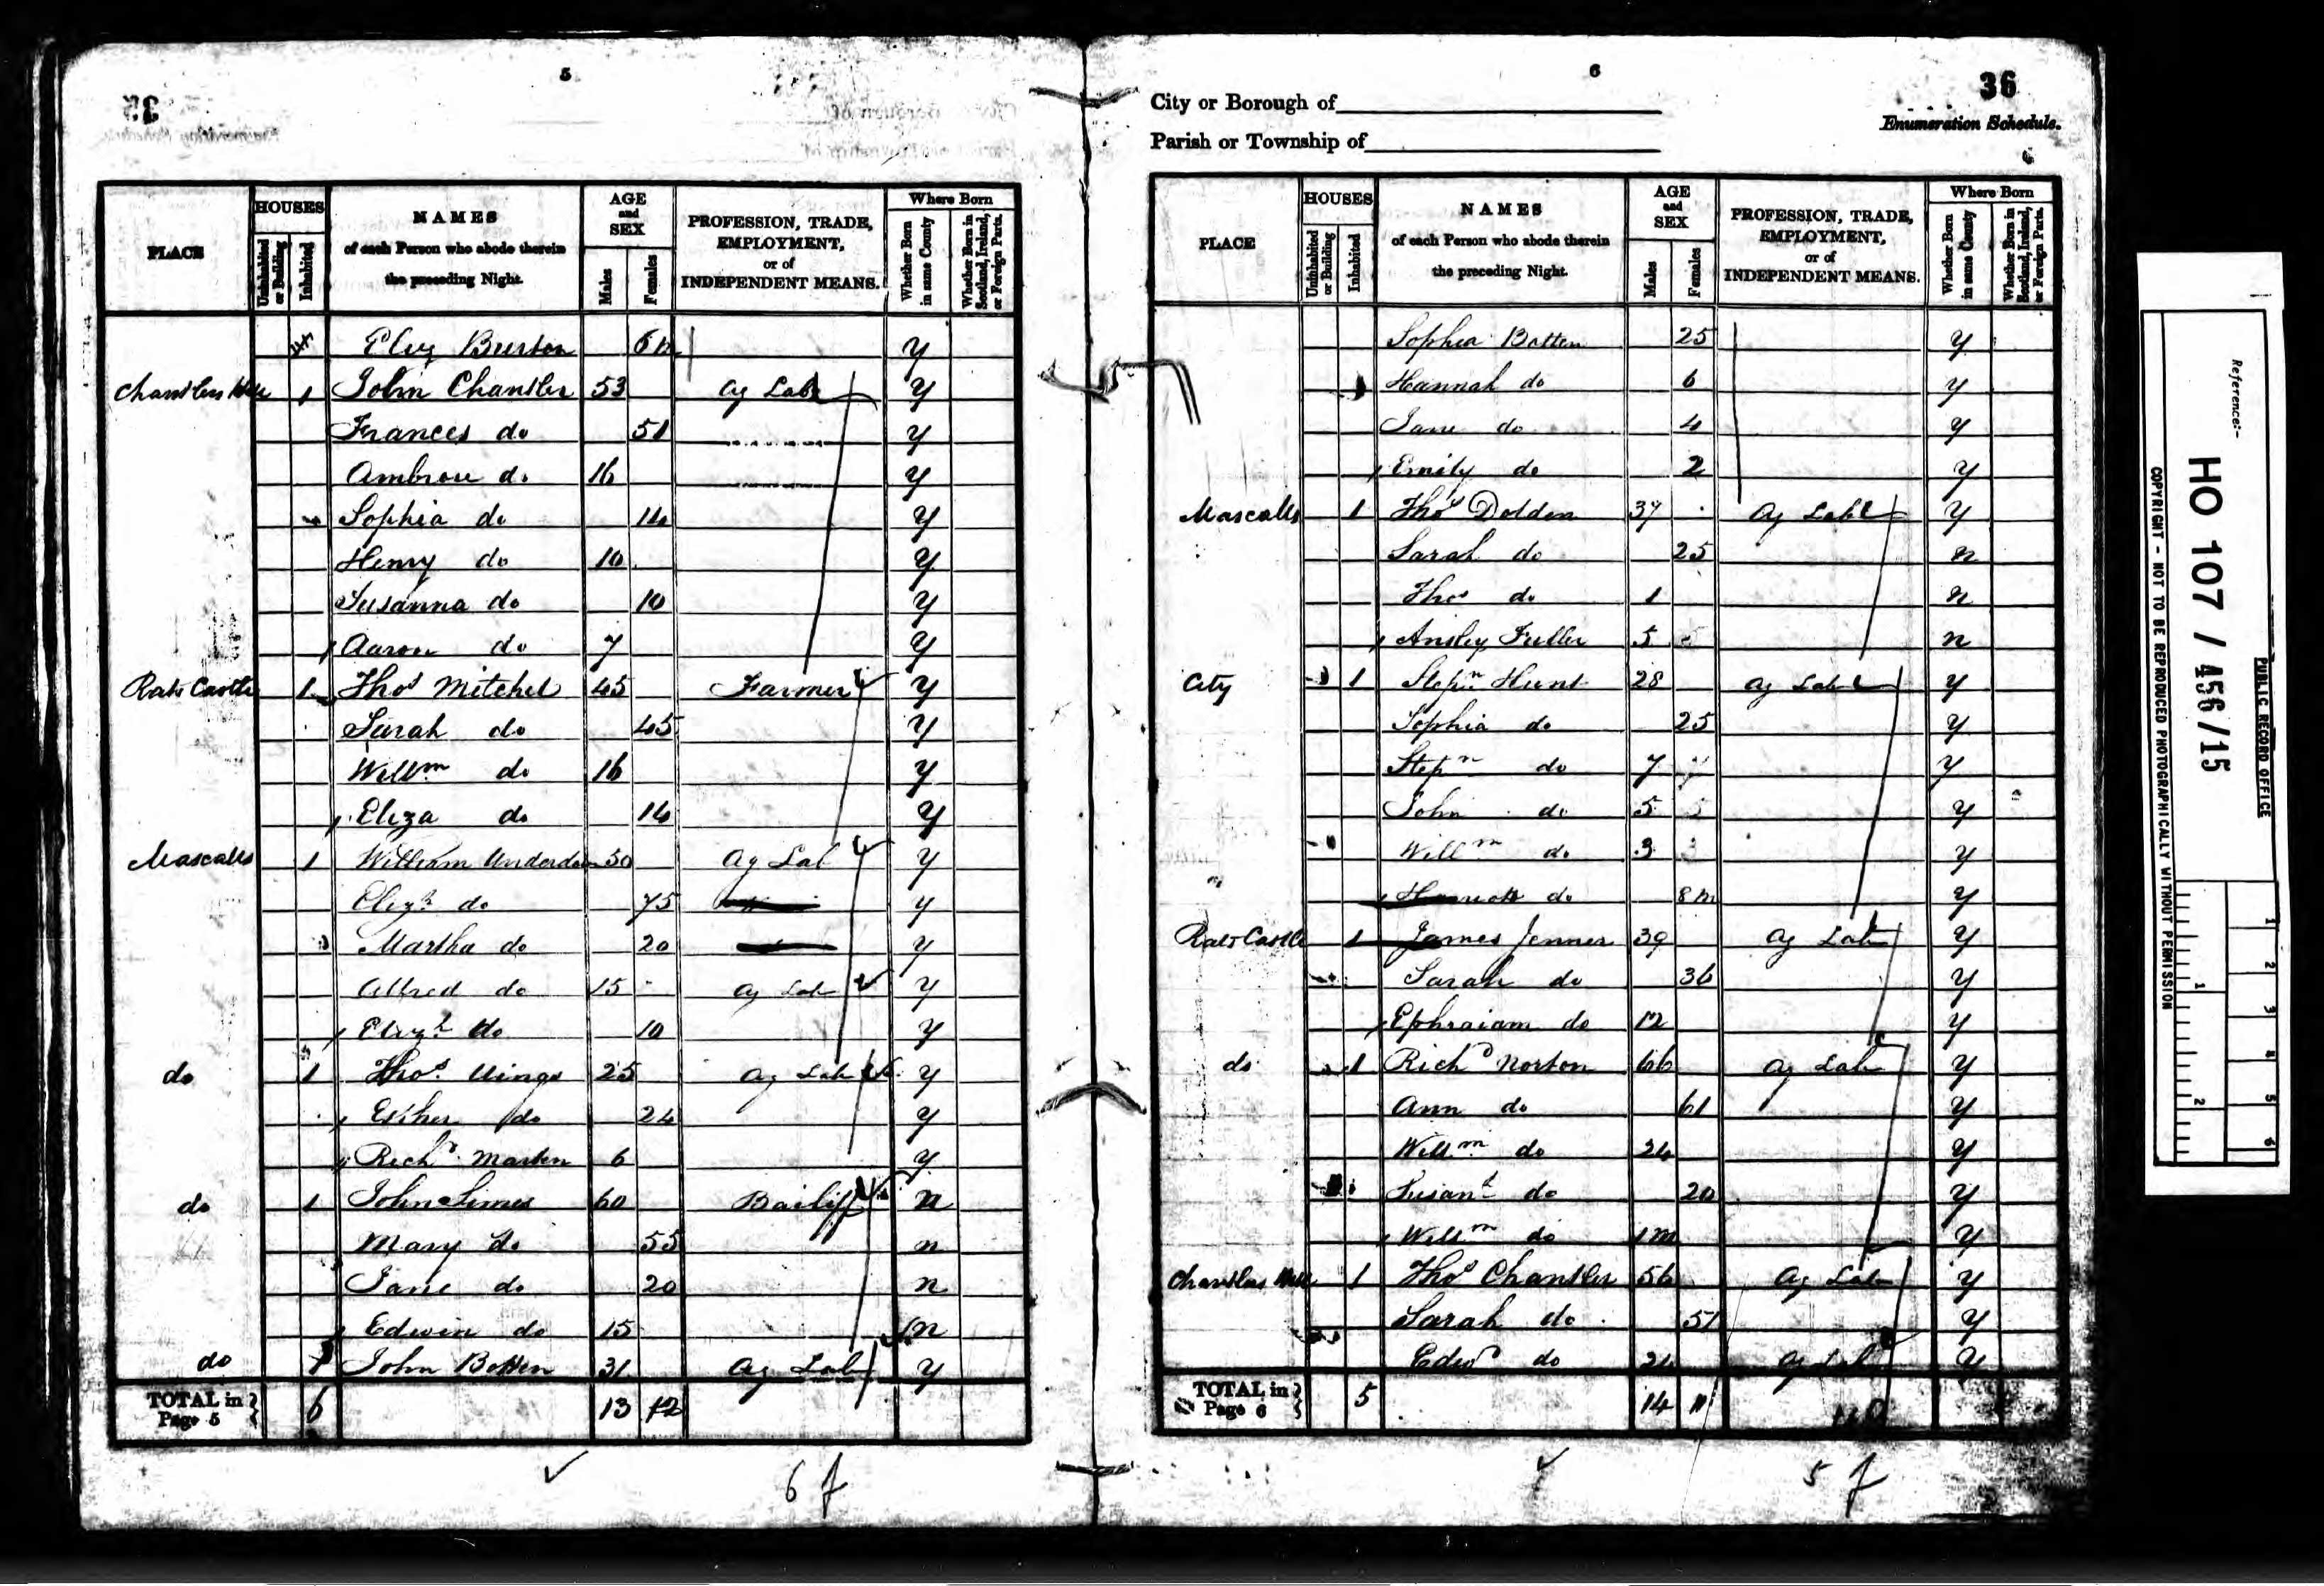 5
PLACE
HOUSES
Uninhabited or Building
Inhabited
NAMES
of each Person who abode therein
the preceding Night.
AGE
and
SEX
Males
Females
PROFESSION, TRADE,
EMPLOYMENT,
or of
INDEPENDENT MEANS.
Where Born
Whether Born in same County
Whether Born in Scotland, Ireland, or Foreign Parts.
Burton 6m y
1 John Chantler 53 Ag Lab y
Frances do 51 y
Ambrose do 16 y
Sophia do 14 y
Henry do 10 y
Susanna do 10 y
Aaron do 7 y
Rats Castle 1 Thos Mitchel 45 Farmer y
Sarah do 45 y
Willm do 16 y
Eliza do 14 y
Mascalls 1 William 30 Ag Lab y
Elizth do 75 y
Martha do 20 y
Alfred do 15 Ag Lab y
Elizth do 10 y
do 1 Thos 25 Ag Lab y
Esther do 24 y
Richd Marten 6 y
do 1 John Simes 60 Bailiff n
Mary do 55 n
Jane do 20 n
Edwin do 15 n
do 1 John Botten 31 Ag Lab y
TOTAL in Page 5 } 6 13 12
6 f
6
36
City or Borough of
Enumeration Schedule.
Parish or Township of
PLACE
HOUSES
Uninhabited or Building
Inhabited
NAMES
of each Person who abode therein
the preceding Night.
AGE
and
SEX
Males
Females
PROFESSION, TRADE,
EMPLOYMENT,
or of
INDEPENDENT MEANS.
Where Born
Whether Born in same County
Whether Born in Scotland, Ireland, or Foreign Parts.
Sophia Botten 25 y
Hannah do 6 y
Jane do 4 y
Emily do 2 y
Mascalls 1 Thos Dolden 37 Ag Lab y
Sarah do 25 n
Thos do 1 n
Ansley Fuller 5 n
City 1 Stepn Hunt 28 Ag Lab y
Sophia do 25 y
Stepn do 7 y
John do 5 y
Willm do 3 y
do 8m y
Rats Castle 1 James Jenner 39 Ag Lab y
Sarah do 36 y
Ephraiam do 12 y
do 1 Richd Norton 66 Ag Lab y
Ann do 61 y
Willm do 24 y
do 20 y
Willm do 1m y
1 Thos Chantler 56 Ag Lab y
Sarah do 51 y
Edwd do 21 Ag Lab y
TOTAL in Page 6 } 5 14 11
5 f
Reference:-
HO 107 / 456/15
PUBLIC RECORD OFFICE
COPYRIGHT - NOT TO BE REPRODUCED PHOTOGRAPHICALLY WITHOUT PERMISSION
1
2
1
2
3
4
5
6